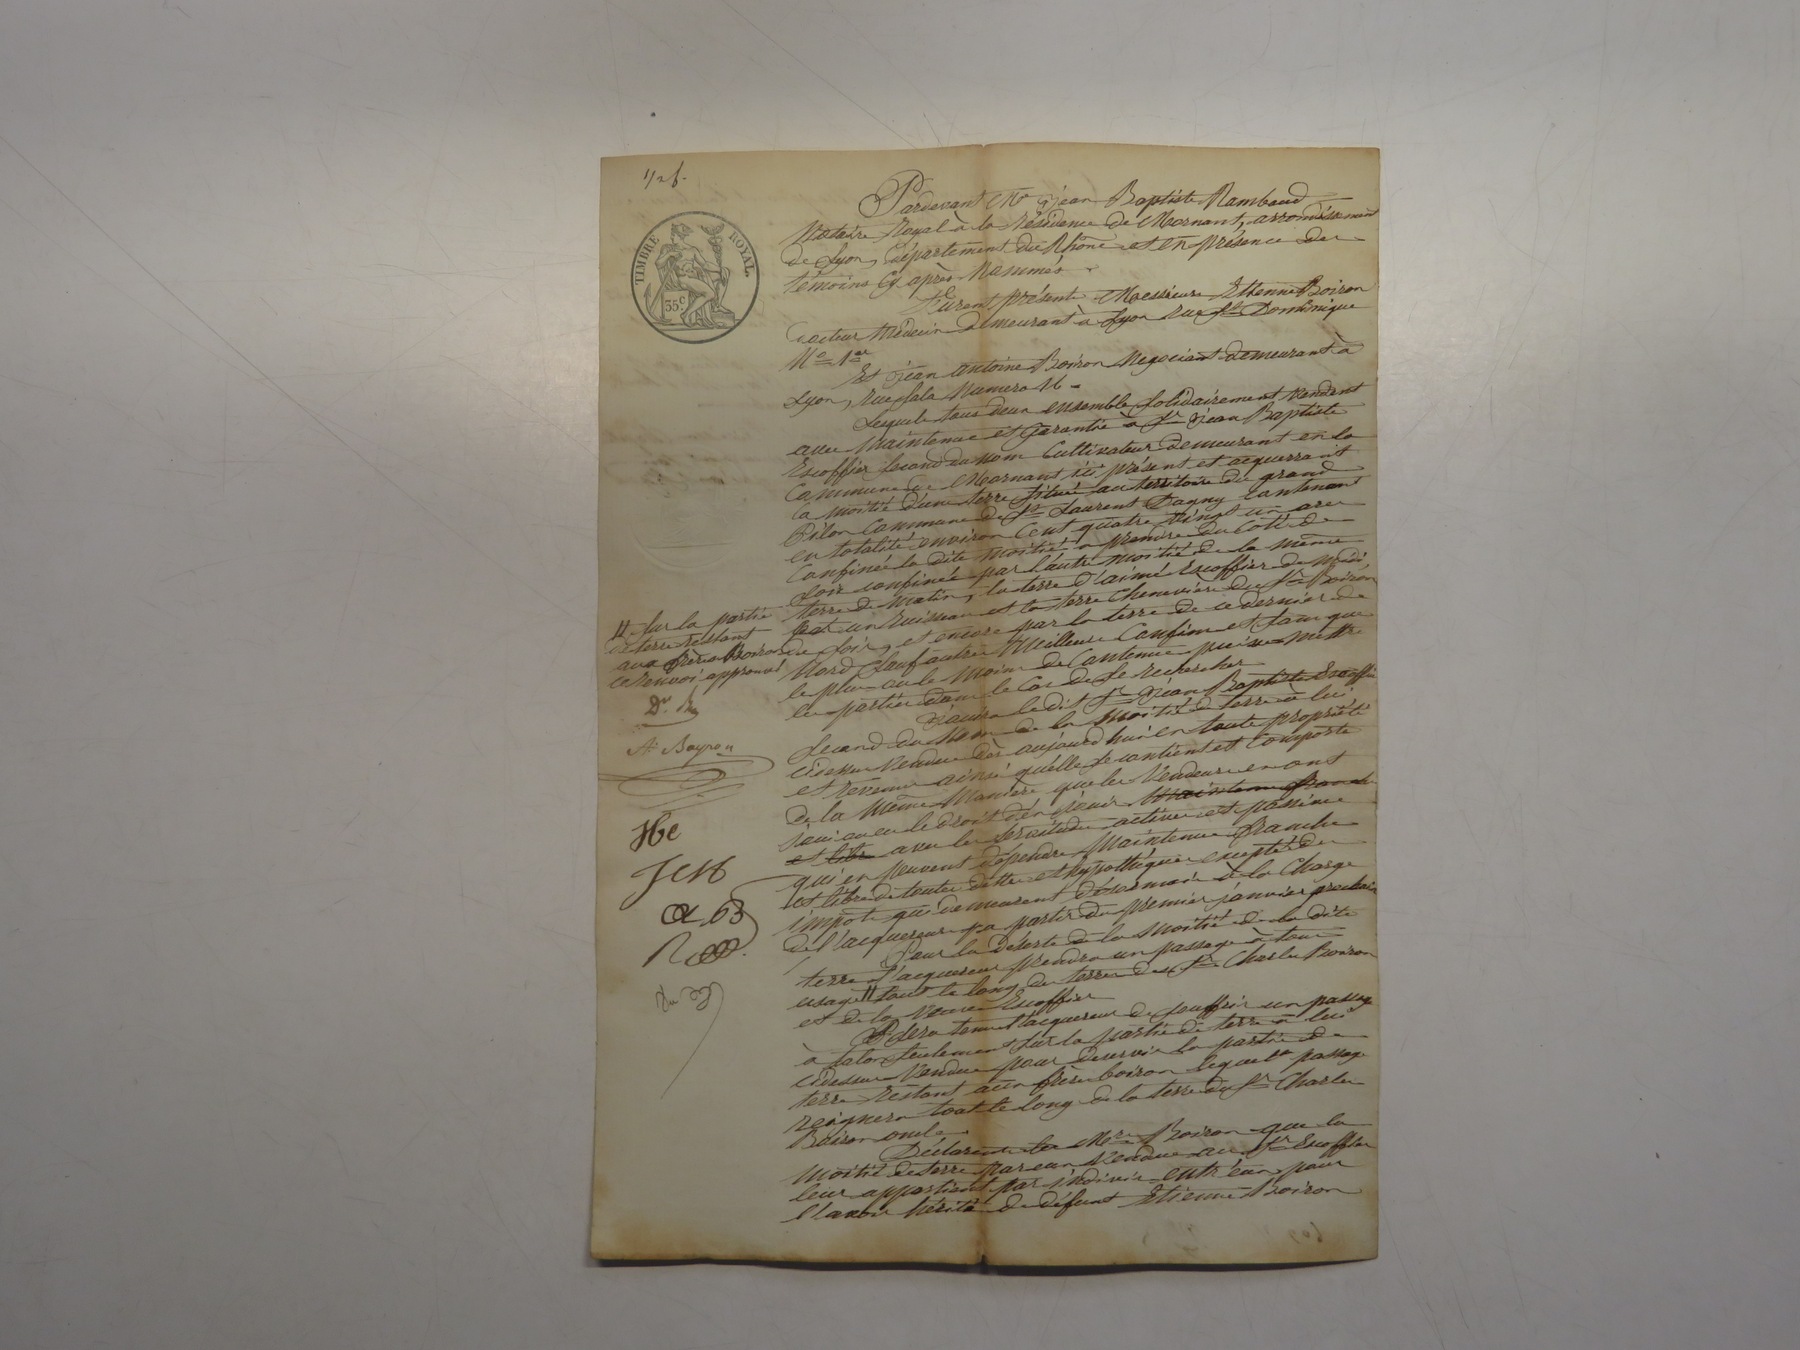 TIMBRE ROYAL.
35 c
Pardevant Me jean Baptiste Rambaud
Notaire Royal à la Résidence de Mornant, arrondissement
de Lyon, département du Rhône et en présence des
témoins Cy après Nommés
Furent présents Messieurs Etienne Boiron
docteur Médecin demeurant à Lyon Rue St Dominique
No 1er
Et jean antoine Boiron Negociant demeurant à
Lyon, Rue Sala Numero 16
Lesquels tous deux ensemble Solidairement Vendent
avec Maintenue et Garantie à Sr jean Baptiste
Escoffier Second du nom Cultivateur demeurant en la
Commune de Mornant ici présent et acquerrant
la moitié d'une terre Située au territoire du grand
Pilon Commune de St Laurent Dagny Contenant
en totalité environ Cent quatre Vingt un ares
Confinée la dite Moitié a prendre du Coté de
Soir confinée par l'autre moitié de la même
terre de matin, la terre d'aimé Escoffier de midi,
par un Ruisseau et la terre Chenevière du Sr Boiron
de Soir, et encore par la terre de ce dernier de
Nord Sauf autres Meilleurs Confins et Sans que
le plus ou le Moins de Contenue puisse mettre
les parties dans le Cas de Se rechercher
Jouira le dit Sr jean Baptiste Escoffier
Second du Nom de la Moitié de terre à lui
cidessus Vendue dès aujourd'hui en toute propriété
et revenus ainsi qu'elle Se contient et Comporte
de la Même Manière que les Vendeurs en ont
joui ou eu le droit d'en jouir Maintenue franche
et libre avec les Servitudes actives et passives
qui en peuvent dépendre Maintenue franche
et libre de toutes dettes et hypothèques excepté des
impôts qui demeurent désormais à la Charge
de l'acquereur a partir du premier janvier prochain
Pour la déserte de la Moitié de la dite
terre l'acquereur prendra un passage à tous
usages tout le long des terres des Srs Charles Boiron
et de la Veuve Escoffier
Sera tenu l'acquereur de Souffrir un passage
à talon Seulement Sur la partie de terre à lui
cidessus Vendue pour deservir la partie de
terre restant aux frères boiron lequel passage
regnera tout le long de la terre du Sr Charles
Boiron oncle
Déclarent les Mrs Boiron que la
Moitié de terre par eux Vendue au Sr Escoffier
leur appartient par indivis entr'eux pour
l'avoir hérité de défunt Etienne Boiron
Sur la partie
de terre restant
aux frères Boiron
ce renvoi approuvé
Dr
At Boyron